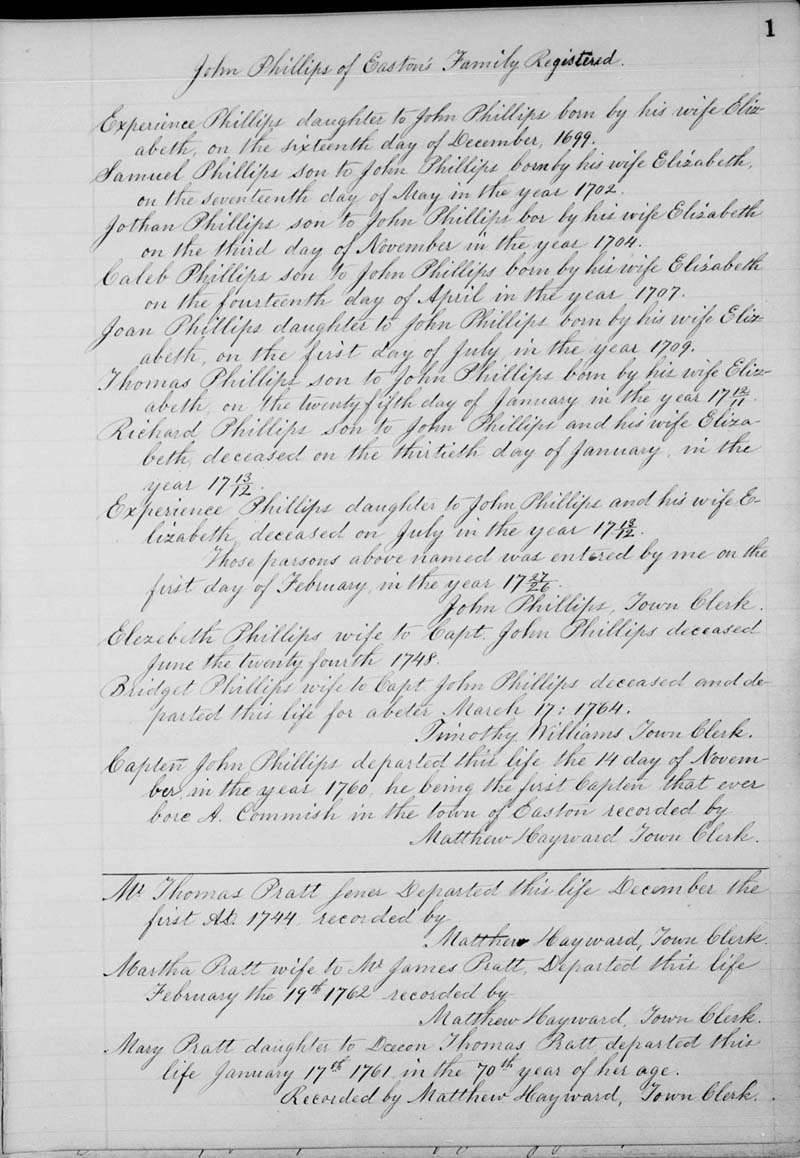 1
John Phillips of Easton's Family Registered.
Experience Phillips daughter to John Phillips born by his wife Eliz-
abeth, on the sixteenth day of December, 1699.
Samuel Phillips son to John Phillips born by his wife Elizabeth,
on the seventeenth day of May in the year 1702.
Jothan Phillips son to John Phillips bor by his wife Elizabeth
on the third day of November in the year 1704.
Caleb Phillips son to John Phillips born by his wife Elizabeth
on the fourteenth day of April in the year 1707.
Joan Phillips daughter to John Phillips born by his wife Eliz-
abeth, on the first day of July in the year 1709.
Thomas Phillips son to John Phillips born by his wife Eliz-
abeth, on the twenty fifth day of January in the year 17 12/11.
Richard Phillips son to John Phillips and his wife Eliza-
beth, deceased on the thirtieth day of January, in the
year 17 13/12.
Experience Phillips daughter to John Phillips and his wife E-
lizabeth deceased on July in the year 17 13/12.
Those parsons above named was entered by me on the
first day of February, in the year 17 27/26.
John Phillips, Town Clerk.
Elezebeth Phillips wife to Capt. John Phillips deceased
June the twenty fourth 1748.
Bridget Phillips wife to Capt John Phillips deceased and de-
parted this life for abeter March 17: 1764.
Timothy Williams Town Clerk.
Capten John Phillips departed this life the 14 day of Novem-
ber, in the year 1760, he being the first Capten that ever
bore A. Commish in the town of Easton recorded by
Matthew Hayward Town Clerk.
Mr Thomas Pratt Sener Departed this life December the
first A.D. 1744. recorded by
Matthew Hayward, Town Clerk.
Martha Pratt wife to Mr James Pratt, Departed this life
February the 19th 1762 recorded by
Matthew Hayward, Town Clerk.
Mary Pratt daughter to Decon Thomas Pratt departed this
life January 17th 1761 in the 70th year of her age.
Recorded by Matthew Hayward, Town Clerk.